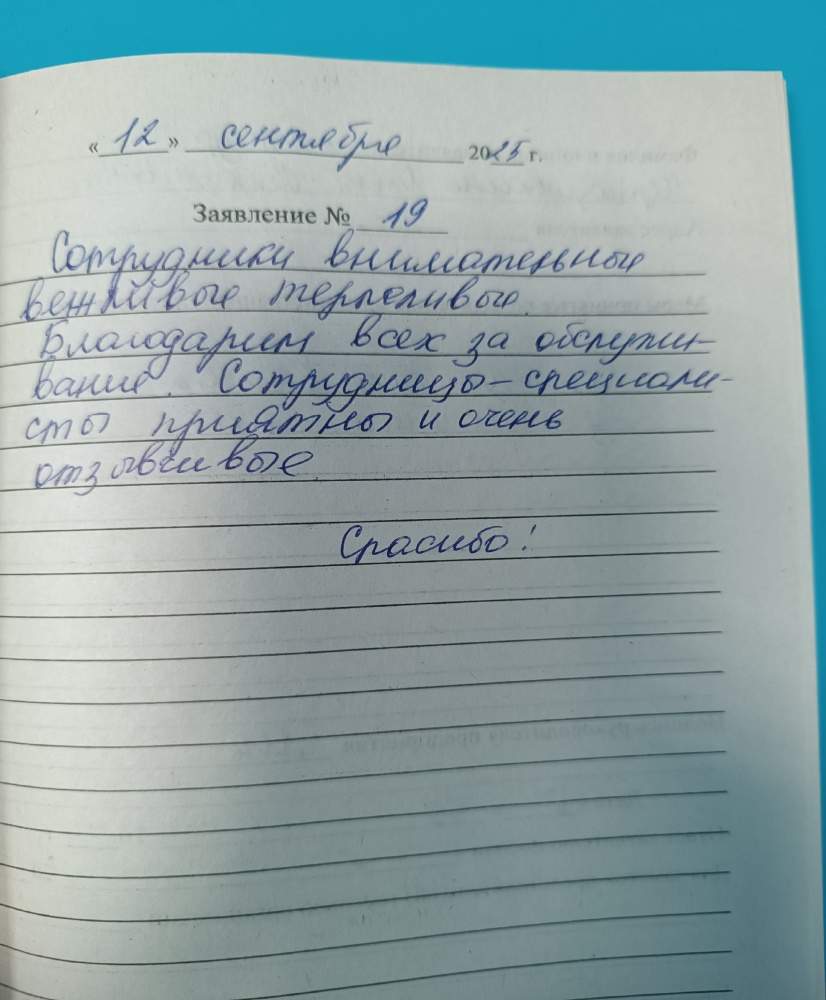 «12» сентября 2025 г.
Заявление № 19
Сотрудники внимательные
вежливые терпеливые.
Благодарим всех за обслужи-
вание. Сотрудницы-специали-
сты приятны и очень
отзывчивые.
Спасибо!